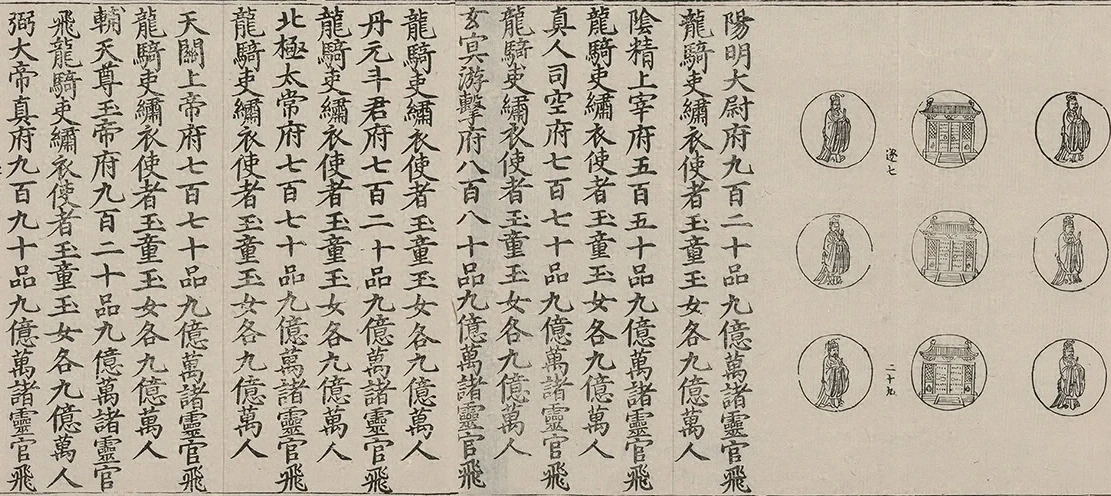 遂七
二十九
陽明大尉府九百二十品九億萬諸靈官飛
龍騎吏繡衣使者玉童玉女各九億萬人
陰精上宰府五百五十品九億萬諸靈官飛
龍騎吏繡衣使者玉童玉女各九億萬人
真人司空府七百七十品九億萬諸靈官飛
龍騎吏繡衣使者玉童玉女各九億萬人
玄冥游擊府八百八十品九億萬諸靈官飛
龍騎吏繡衣使者玉童玉女各九億萬人
丹元斗君府七百二十品九億萬諸靈官飛
龍騎吏繡衣使者玉童玉女各九億萬人
北極太常府七百七十品九億萬諸靈官飛
龍騎吏繡衣使者玉童玉女各九億萬人
天關上帝府七百七十品九億萬諸靈官飛
龍騎吏繡衣使者玉童玉女各九億萬人
輔天尊玉帝府九百二十品九億萬諸靈官
飛龍騎吏繡衣使者玉童玉女各九億萬人
弼大帝真府九百九十品九億萬諸靈官飛